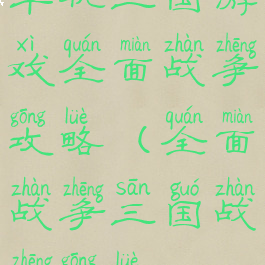 三国游
xì quán miàn zhàn zhēng
戏全面战争
gōng lüè quán miàn
攻略（全面
zhàn zhēng sān guó zhàn
战争三国战
zhēng gōng lüè